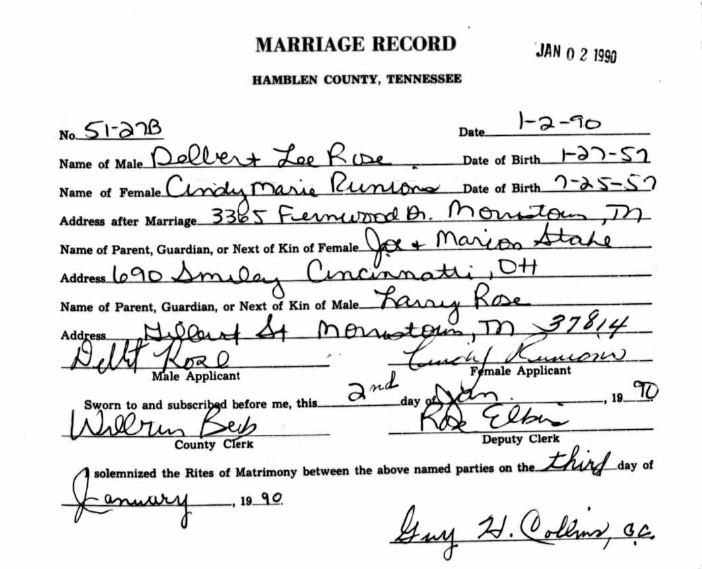 MARRIAGE RECORD
JAN 02 1990
HAMBLEN COUNTY, TENNESSEE
No. 51-27B Date 1-2-90
Name of Male Delbert Lee Rose Date of Birth 1-27-57
Name of Female Cindy Marie Runions Date of Birth 7-25-57
Address after Marriage 3365 Fernwood Dr. Morristown, TN
Name of Parent, Guardian, or Next of Kin of Female Joe + Marion
Address 690 Smiley Cincinnatti, OH
Name of Parent, Guardian, or Next of Kin of Male Larry Rose
Address St Morristown, TN 37814
Rose Cindy Runions
Male Applicant Female Applicant
Sworn to and subscribed before me, this 2nd day of Jan. , 19 90
County Clerk Deputy Clerk
I solemnized the Rites of Matrimony between the above named parties on the third day of
January , 19 90
Guy H. Collins,